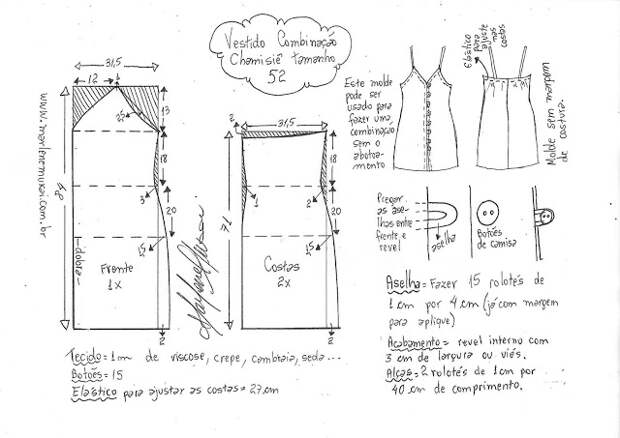 Vestido Combinação
Chemisiê tamanho
52
31,5
12
13
18
3
20
15
84
www.marlenemukai.com.br
dobra
Frente
1x
2
2
31,5
18
1
2
71
20
15
Costas
2x
2
Este molde
pode ser
usado para
fazer uma
combinação
sem o
abotoamento
Elástico
para
ajuste
nas
costas
Molde sem margem
de costura.
Pregar
as ase-
lhas entre
frente e
revel
aselha
Botões
de camisa
Aselha= Fazer 15 rolotés de
1 cm por 4 cm (já com margem
para aplique)
Acabamento= revel interno com
3 cm de largura ou viés.
Alças= 2 rolotés de 1 cm por
40 cm de comprimento.
Tecido= 1m de viscose, crepe, cambraia, seda...
Botões= 15
Elástico para ajustar as costas= 27cm